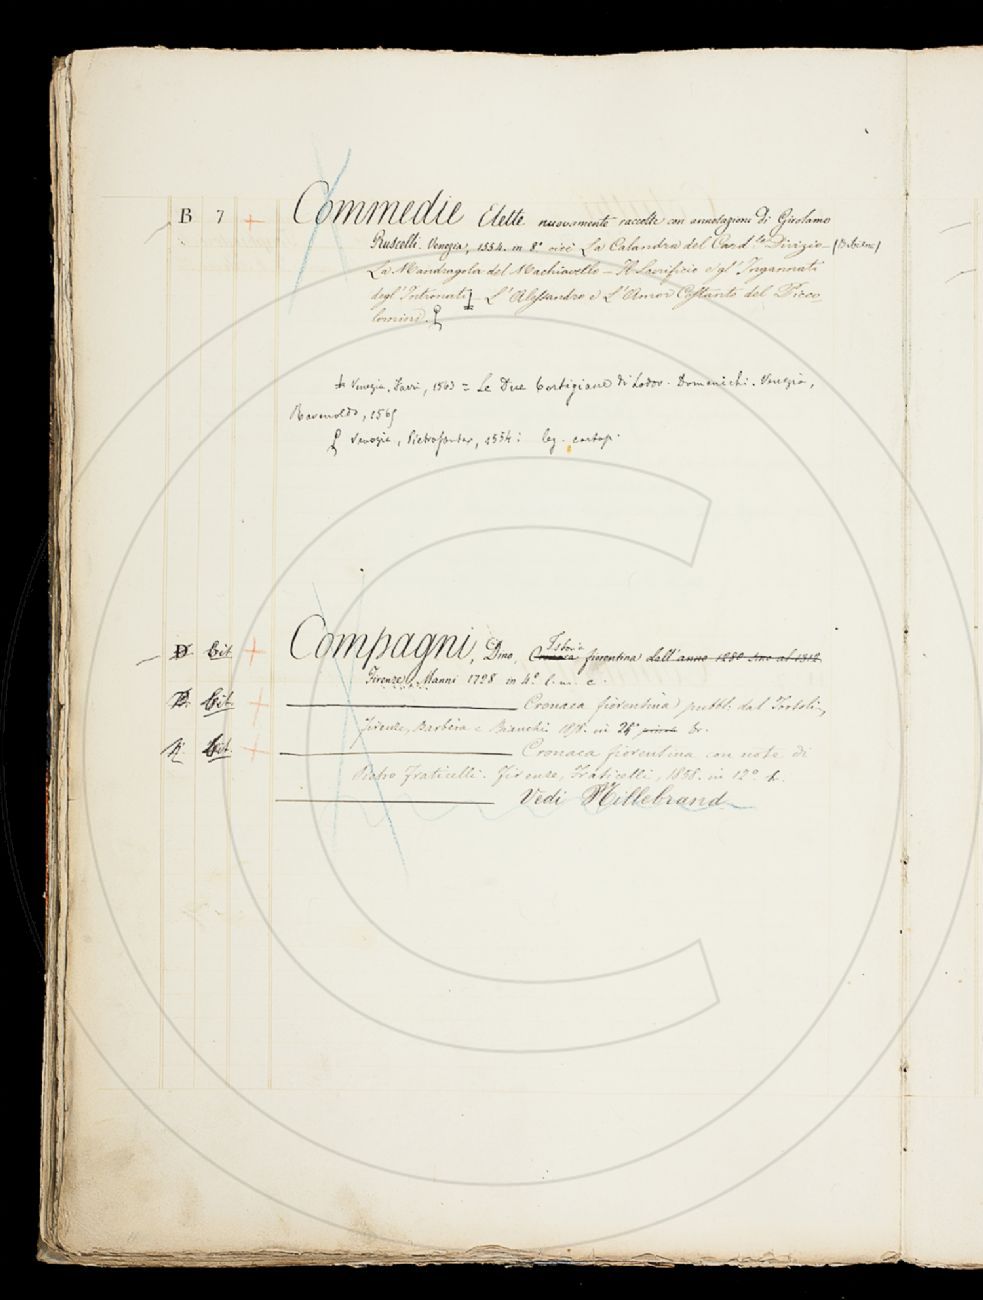 B 7 + Commedie Elette nuovamente raccolte con annotazioni di Girolamo
Ruscelli. Venezia, 1554. in 8° cioè La Calandra del Card.le Divizio – (Bibiena)
La Mandragola del Machiavello – Il Sacrificio e gl' Ingannati
degl' Intronati – L' Alessandro e L' Amor Costante del Picco
lomini.
Venezia, 1563 = Le Due Cortigiane di Lodov. Domenichi. Venezia,
1565
Venezia, Pietrasanta, 1554: leg. cartap.
B Cit + Compagni, Dino. Istoria Cronaca fiorentina dall' anno 1280 sino al 1312
Firenze, Manni 1728 in 4°
Cit. + Cronaca fiorentina pubbl. dal
Firenze, Barbèra e Bianchi in
Cit + Cronaca fiorentina con note di
Pietro Fraticelli. Firenze, Fraticelli, 1858. in 12°
Vedi Hillebrand